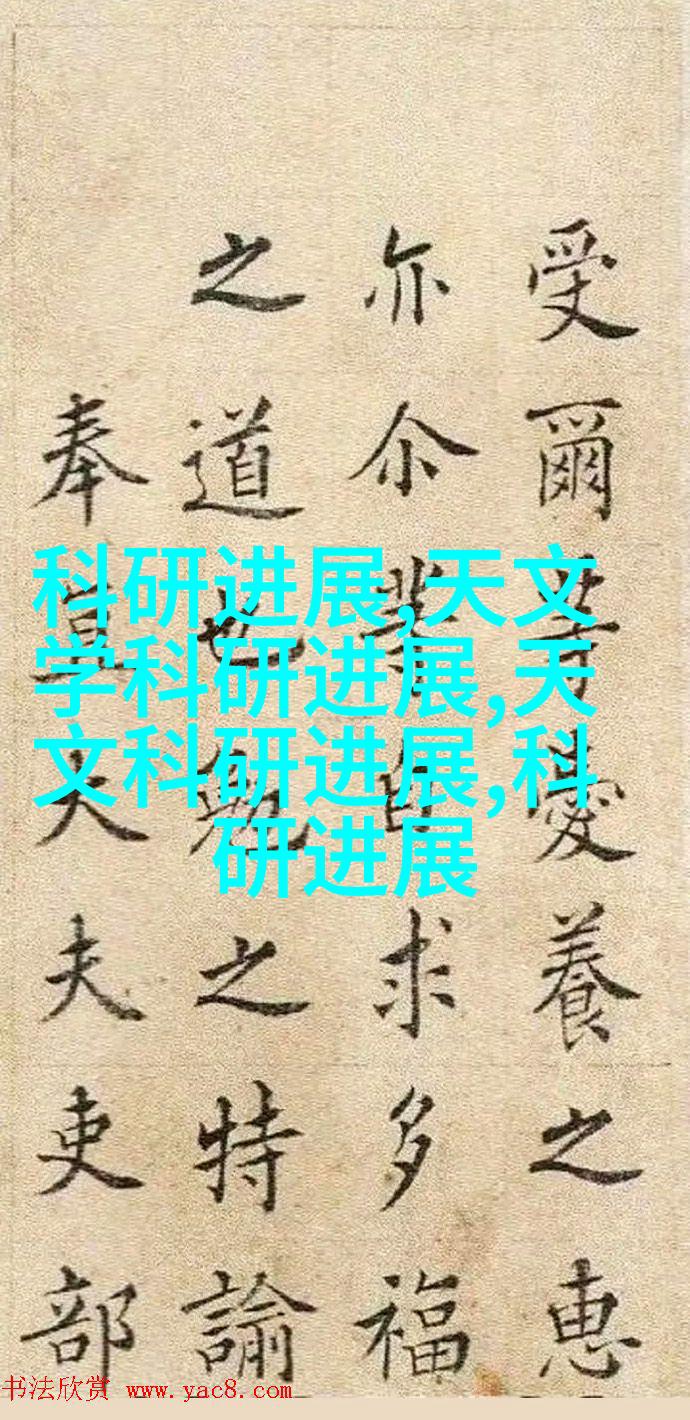 受爾等愛養之惠
亦尒輩自求多福
之道也勉之特諭
奉直大夫吏部
科研进展,天文
学科研进展,天
文科研进展,科
研进展
书法欣赏 www.yac8.com